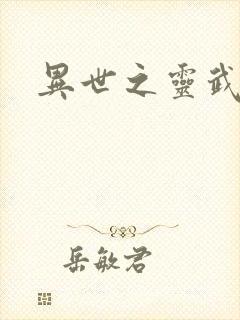 異世之靈武
岳敏君